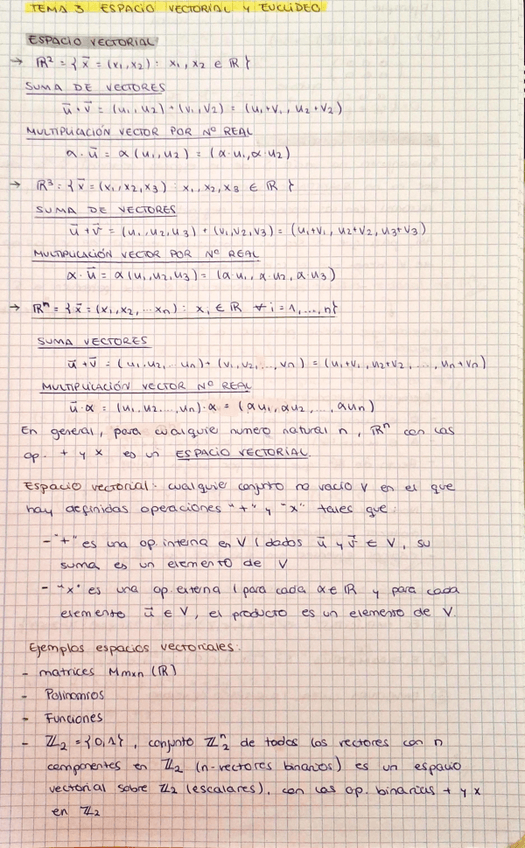 TEMA 3 ESPACIO VECTORIAL Y EUCLIDEO
ESPACIO VECTORIAL
→ ℝ² = { x⃗ = (x₁, x₂) : x₁, x₂ ∈ ℝ }
SUMA DE VECTORES
u⃗ + v⃗ = (u₁, u₂) + (v₁, v₂) = (u₁+v₁, u₂+v₂)
MULTIPLICACIÓN VECTOR POR Nº REAL
α · u⃗ = α (u₁, u₂) = (α·u₁, α·u₂)
→ ℝ³ = { x⃗ = (x₁, x₂, x₃) : x₁, x₂, x₃ ∈ ℝ }
SUMA DE VECTORES
u⃗ + v⃗ = (u₁, u₂, u₃) + (v₁, v₂, v₃) = (u₁+v₁, u₂+v₂, u₃+v₃)
MULTIPLICACIÓN VECTOR POR Nº REAL
α · u⃗ = α (u₁, u₂, u₃) = (α u₁, α·u₂, α·u₃)
→ ℝⁿ = { x⃗ = (x₁, x₂, ... xₙ) : xᵢ ∈ ℝ ∀ i = 1, ..., n }
SUMA VECTORES
u⃗ + v⃗ = (u₁, u₂, ... uₙ) + (v₁, v₂, ..., vₙ) = (u₁+v₁, u₂+v₂, ..., uₙ+vₙ)
MULTIPLICACIÓN VECTOR Nº REAL
u⃗ · α = (u₁, u₂ ..., uₙ) · α = (αu₁, αu₂, ..., αuₙ)
En general, para cualquie numero natural n, ℝⁿ con las
op. + y × es un ESPACIO VECTORIAL.
Espacio vectorial: cualquier conjunto no vacío V en el que
hay definidas operaciones "+" y "×" tales que:
- "+" es una op. interna en V (dados u⃗ y v⃗ ∈ V, su
suma es un elemento de V
- "×" es una op. externa (para cada α ∈ ℝ y para cada
elemento u⃗ ∈ V, el producto es un elemento de V.
Ejemplos espacios vectoriales:
- matrices Mmxn (ℝ)
- Polinomios
- Funciones
- ℤ₂ = {0,1}, conjunto ℤ₂ⁿ de todos los vectores con n
componentes en ℤ₂ (n-vectores binarios) es un espacio
vectorial sobre ℤ₂ (escalares), con las op. binarias + y ×
en ℤ₂